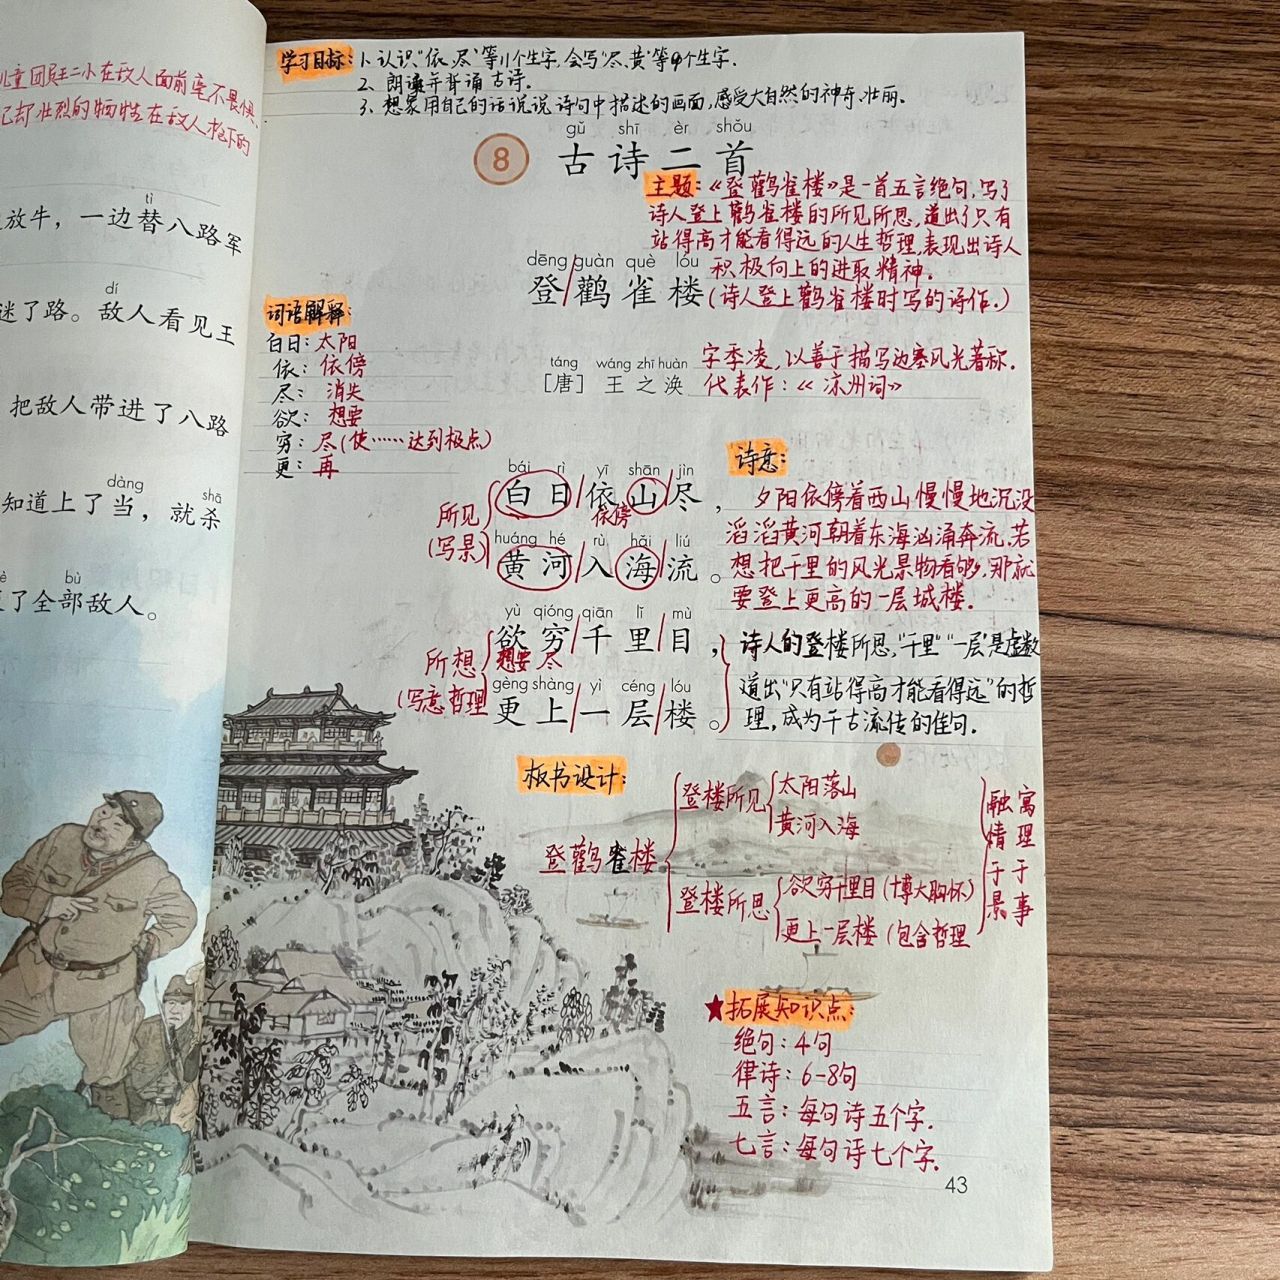 儿童团员王二小在敌人面前毫不畏惧、
己却壮烈的牺牲在敌人枪下的
tì
放牛，一边替八路军
dí
迷了路。敌人看见王
把敌人带进了八路
dàng shā
知道上了当，就杀
bù
了全部敌人。
学习目标：1、认识“依、尽”等11个生字，会写“尽、黄”等9个生字。
2、朗读并背诵古诗。
3、想象用自己的话说说诗句中描述的画面，感受大自然的神奇、壮丽。
gǔ shī èr shǒu
8 古诗二首
主题：《登鹳雀楼》是一首五言绝句，写了
诗人登上鹳雀楼的所见所思，道出了只有
站得高才能看得远的人生哲理，表现出诗人
积极向上的进取精神。
dēng guàn què lóu
登/鹳雀楼
(诗人登上鹳雀楼时写的诗作。)
词语解释：
白日：太阳
依：依傍
尽：消失
欲：想要
穷：尽(使……达到极点)
更：再
táng wáng zhī huàn
［唐］王之涣
字季凌，以善于描写边塞风光著称。
代表作：《凉州词》
bái rì yī shān jìn
白日/依/山/尽，
依傍
huáng hé rù hǎi liú
黄河/入/海/流。
所见
(写景)
yù qióng qiān lǐ mù
欲穷/千里/目，
想要 尽
gèng shàng yì céng lóu
更上/一层/楼。
所想
(写意哲理
诗意：
夕阳依傍着西山慢慢地沉没
滔滔黄河朝着东海汹涌奔流，若
想把千里的风光景物看够，那就
要登上更高的一层城楼。
诗人的登楼所思，“千里”“一层”是虚数
道出“只有站得高才能看得远”的哲
理，成为千古流传的佳句。
板书设计：
登鹳雀楼
登楼所见
太阳落山
黄河入海
登楼所思
欲穷千里目(博大胸怀)
更上一层楼(包含哲理
融情于景
寓理于事
★拓展知识点：
绝句：4句
律诗：6-8句
五言：每句诗五个字.
七言：每句诗七个字.
43